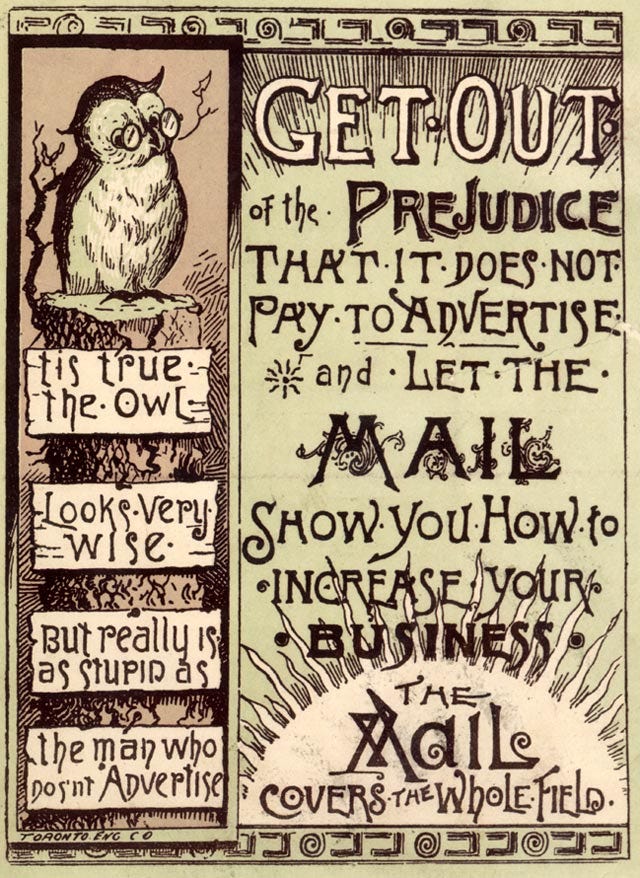 tis true
the · Owl ·
Looks · Very ·
wise ·
But really is
as stupid as
the man who
dos'nt Advertise
TORONTO ENG CO
GET · OUT ·
of the · PREJUDICE
THAT · IT · DOES · NOT ·
PAY · TO ADVERTISE
and · LET · THE ·
MAIL
SHOW · YOU · HOW · to
· INCREASE · YOUR ·
· BUSINESS ·
THE
MAIL
COVERS · THE · WHOLE · FIELD ·